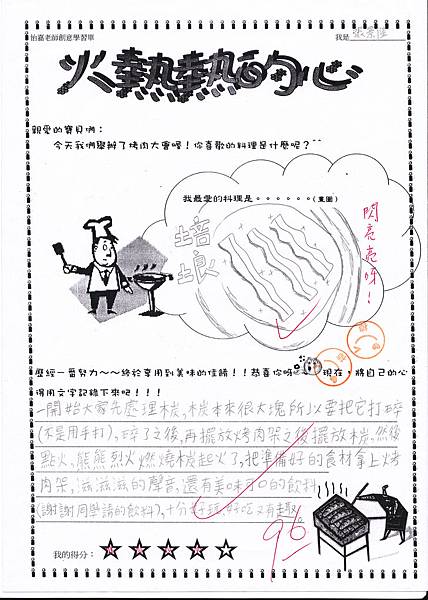 怡嘉老師創意學習單
我是
火熱熱的心
親愛的寶貝們：
今天我們舉辦了烤肉大賽喔！你喜歡的料理是什麼呢？^^
我最愛的料理是。。。。。。(畫圖)
培
根
閃亮亮呀！
歷經一番努力～～終於享用到美味的佳餚！！恭喜你呀 現在，將自己的心
得用文字記錄下來吧！！！
一開始大家先處理木炭，木炭本來很大塊所以要把它打碎
(不是用手打)，碎了之後，再擺放烤肉架之後擺放木炭，然後
點火，熊熊烈火燃燒木炭起火了，把準備好的食材拿上烤
肉架，滋滋滋的聲音，還有美味可口的飲料
(謝謝同學請的飲料)，十分好玩，好吃又有趣。
96
我的得分：